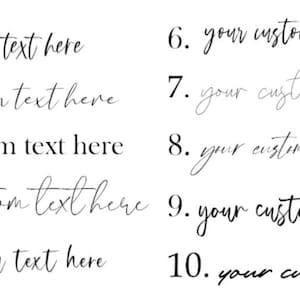 text here
text here
m text here
om text here
text here
6. your custo
7. your cust
8. your custom
9. your cust
10. your cu